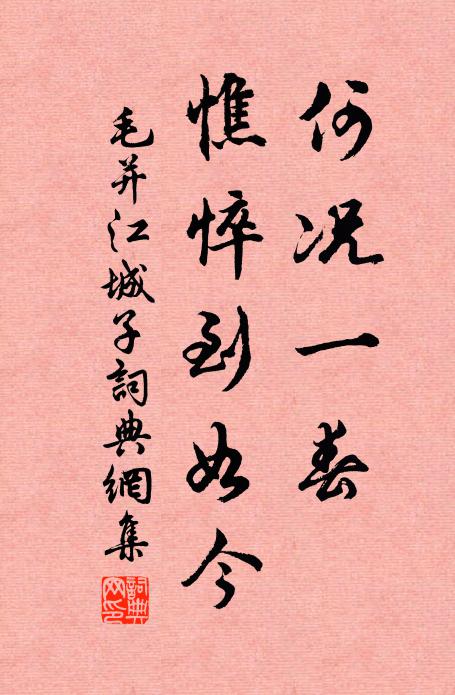 何况一春
憔悴到如今
毛并江城子詞典網集
詞典網印